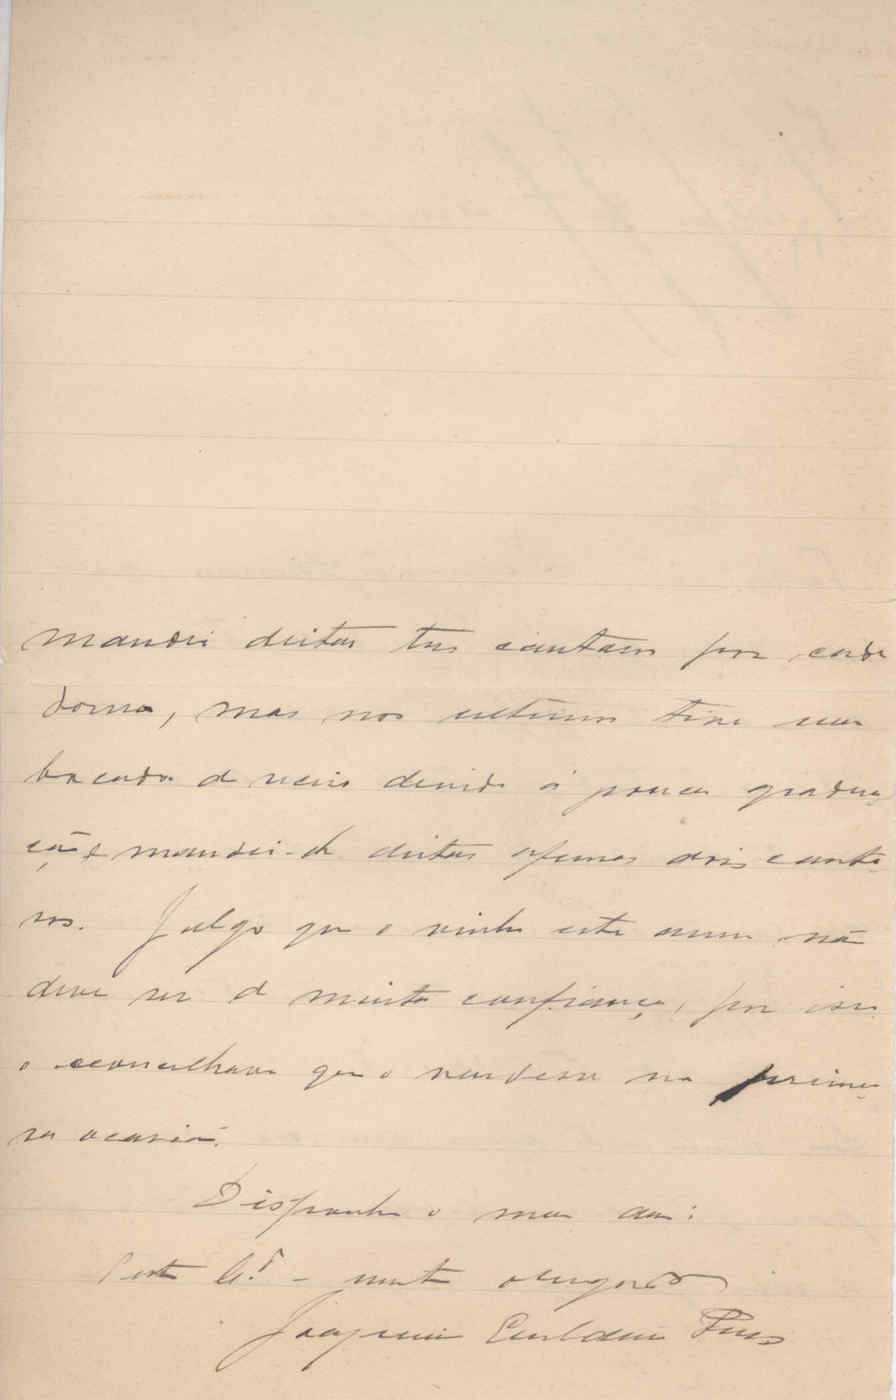 mandei deitar tres cantaros por cada
dorna, mas nos ultimos tive um
bocado de receio devido á pouca gradua
ção e mandei-lhe deitar apenas dois canta
ros. Julgo que o vinho este anno não
deve ser de muita confiança, por isso
o aconselhava que o vendesse na primei
ra ocasião.
Disponha o meu am:
muito obrigado
Joaquim